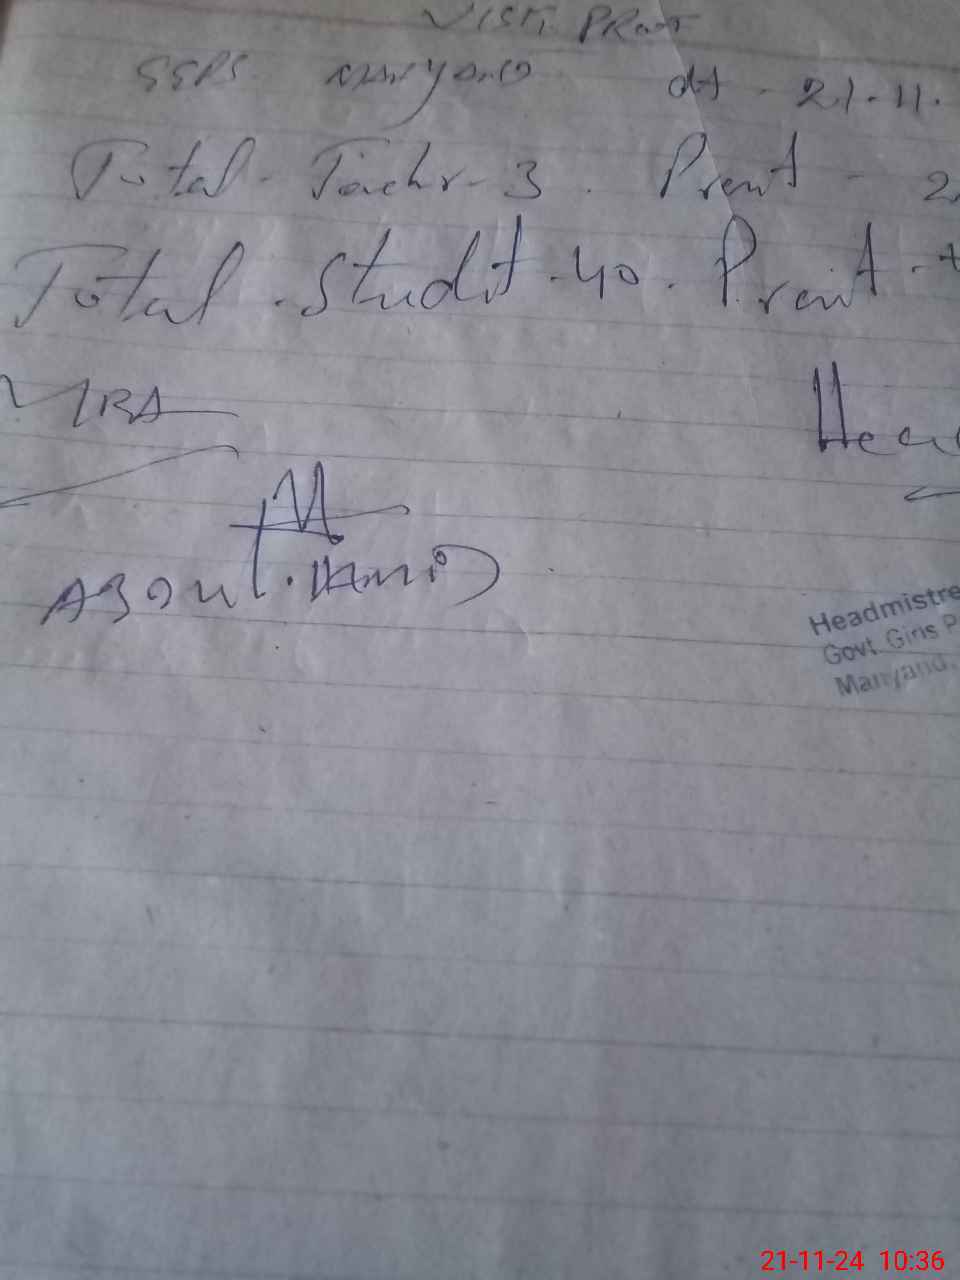 Visit PRoof
GGPS Manyand dt - 21.11.
Total - Teachr - 3 . Prent - 2
Total . Studit - 40 . Prent -
MRA Hea
ABDUL . HAMID
Headmistre
Govt. Girls P
Manyand.
21-11-24 10:36